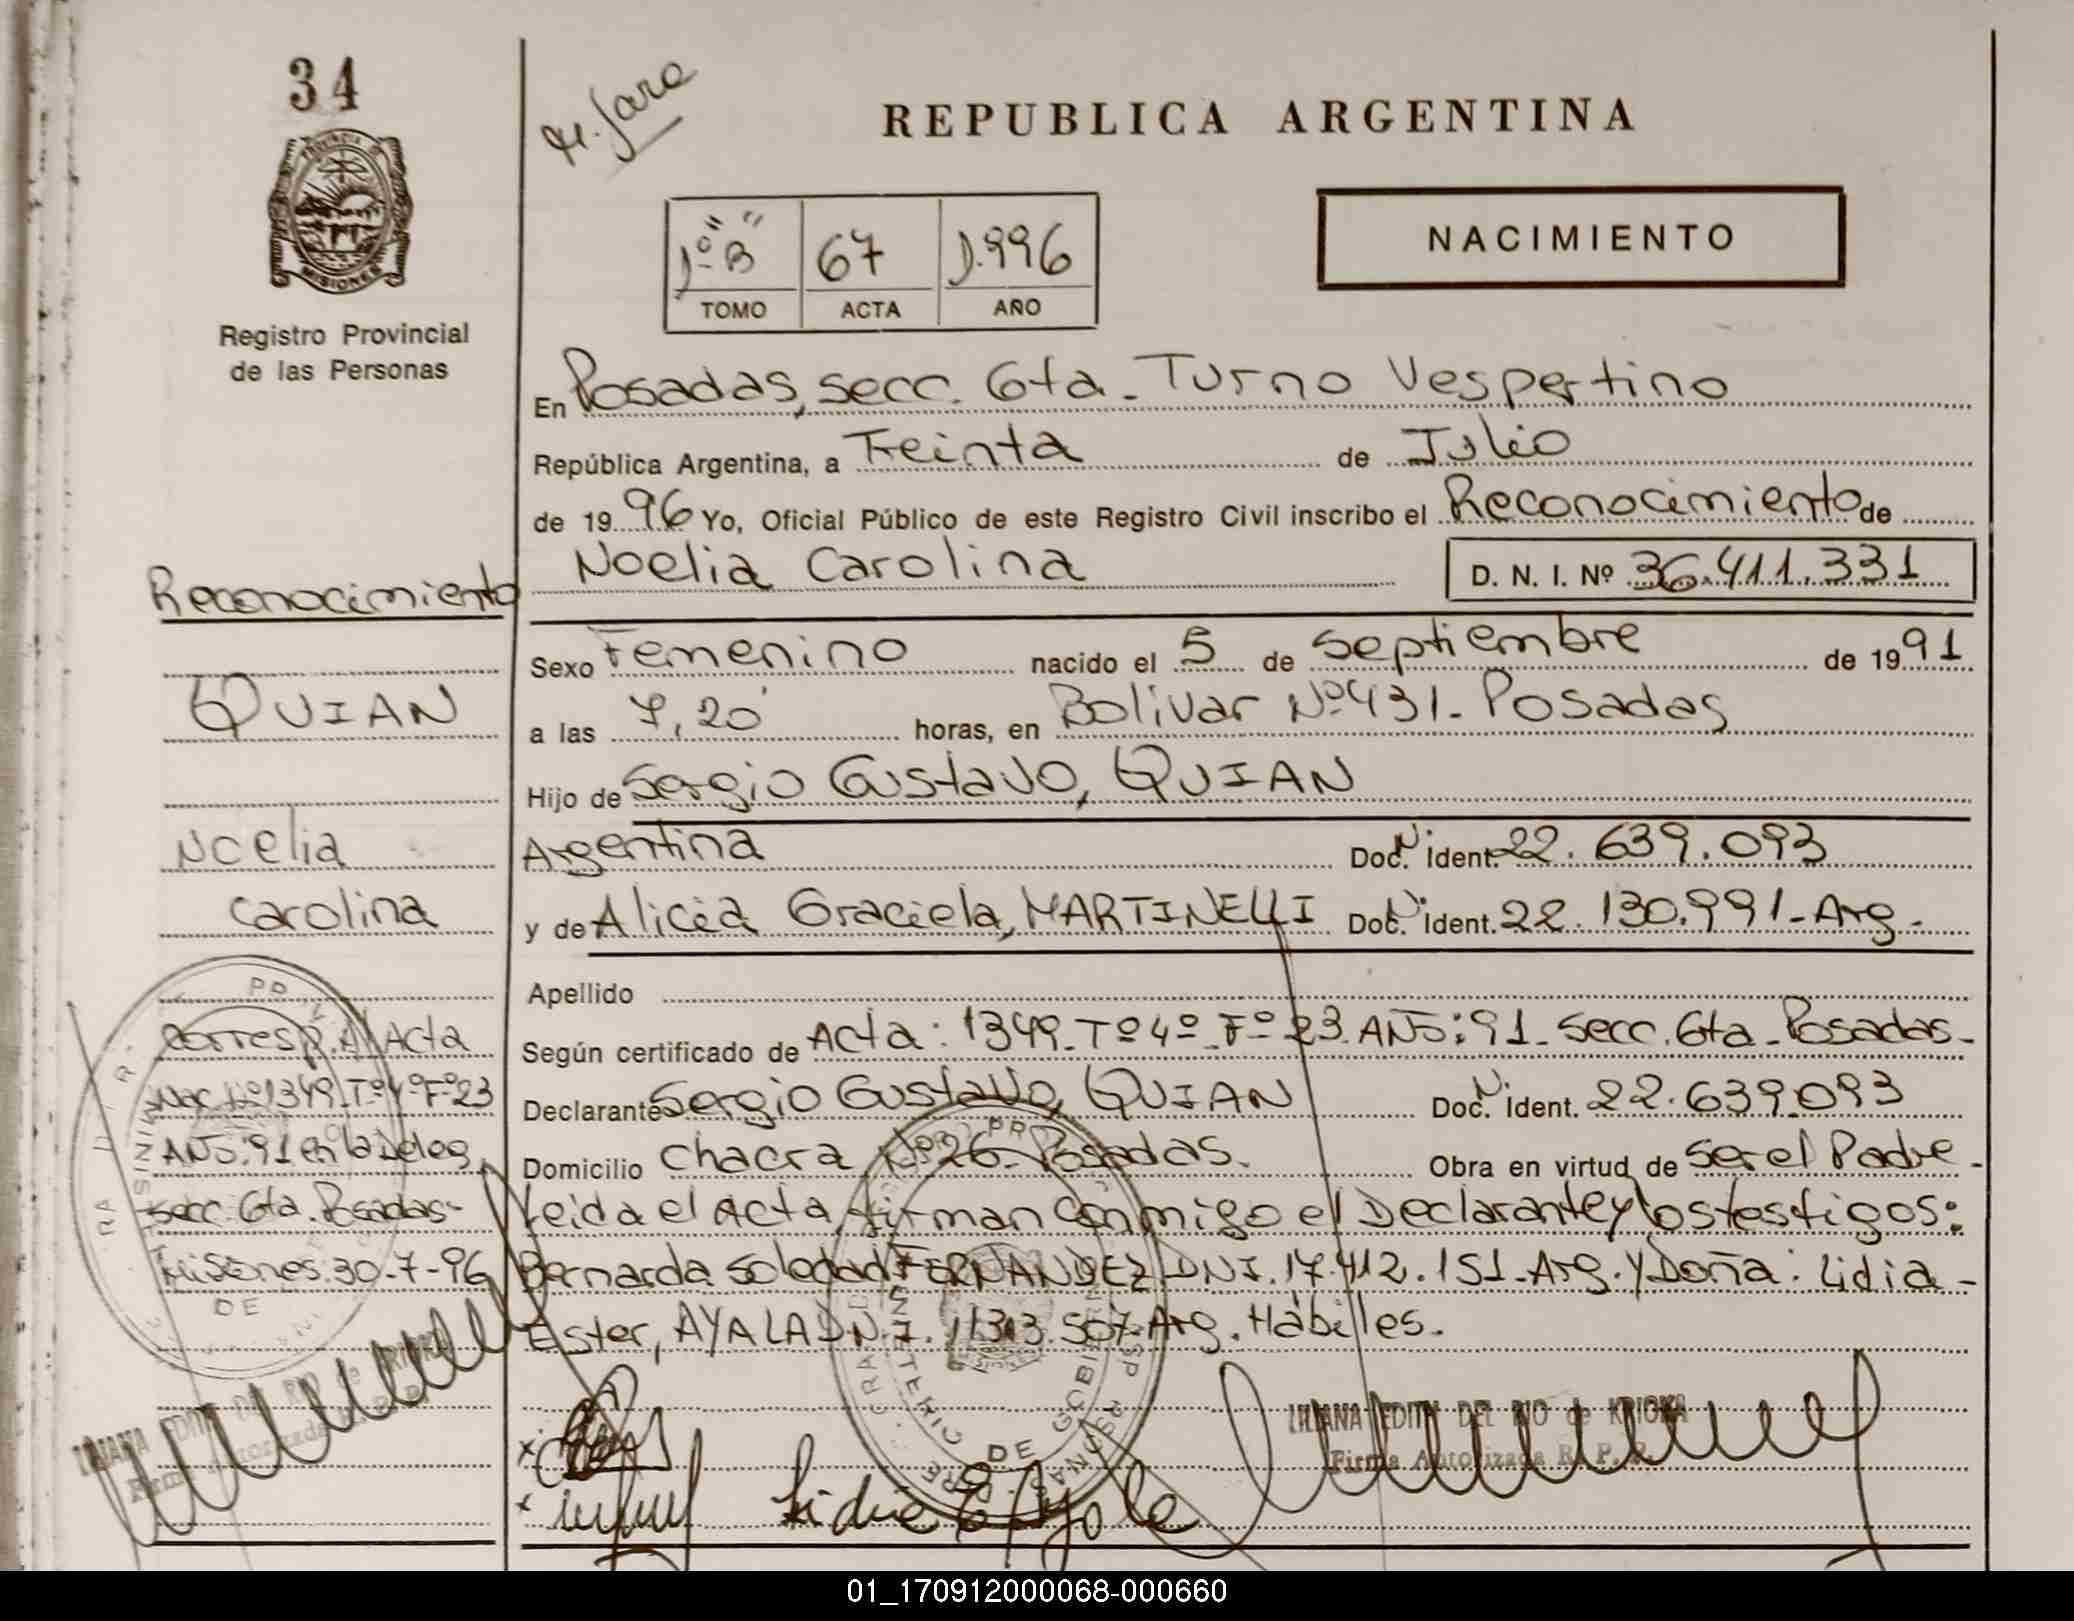 34
M. Jara
REPUBLICA ARGENTINA
PROVINCIA DE
MISIONES
1º "B" 67 1.996
TOMO ACTA AÑO
NACIMIENTO
Registro Provincial
de las Personas
En Posadas, secc. 6ta. Turno Vespertino
República Argentina, a Treinta de Julio
de 1996 Yo, Oficial Público de este Registro Civil inscribo el Reconocimiento de
Noelia Carolina D. N. I. Nº 36.411.331
Sexo Femenino nacido el 5 de Septiembre de 1991
a las 7,20 horas, en Bolivar Nº 431- Posadas
Hijo de Sergio Gustavo, QUIAN
Argentina Doc. N ident. 22.639.093
y de Alicia Graciela, MARTINELLI Doc. N ident. 22.130.991- Arg.-
Apellido
Según certificado de Acta: 1349- Tº 4º- Fº 23. AÑO: 91- secc. 6ta- Posadas-
Declarante Sergio Gustavo, QUIAN Doc. N ident. 22.639.093
Domicilio chacra Nº 26- Posadas. Obra en virtud de ser el Padre-
Leida el Acta, firman conmigo el Declarante y los testigos:
Bernarda Soledad FERNANDEZ DNI. 17.412.151- Arg. Y Doña: Lidia-
Ester, AYALA DN.I. 11.313.507- Arg. Hábiles.
Reconocimiento
QUIAN
Noelia
Carolina
Corresp. Al Acta
Nac. Nº 1349- Tº 4º Fº 23
AÑO: 91 en la Deleg.
secc. 6ta. Posadas-
Misiones. 30-7-96
LILIANA EDITH DEL RIO de KRIOKA
Firma Autorizada R. P. P.
Lidia E Ayala
LILIANA EDITH DEL RIO de KRIOKA
Firma Autorizada R. P. P.
01_170912000068-000660